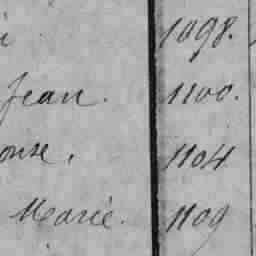 i 1098.
Jean. 1100.
onse. 1104
Marie. 1109